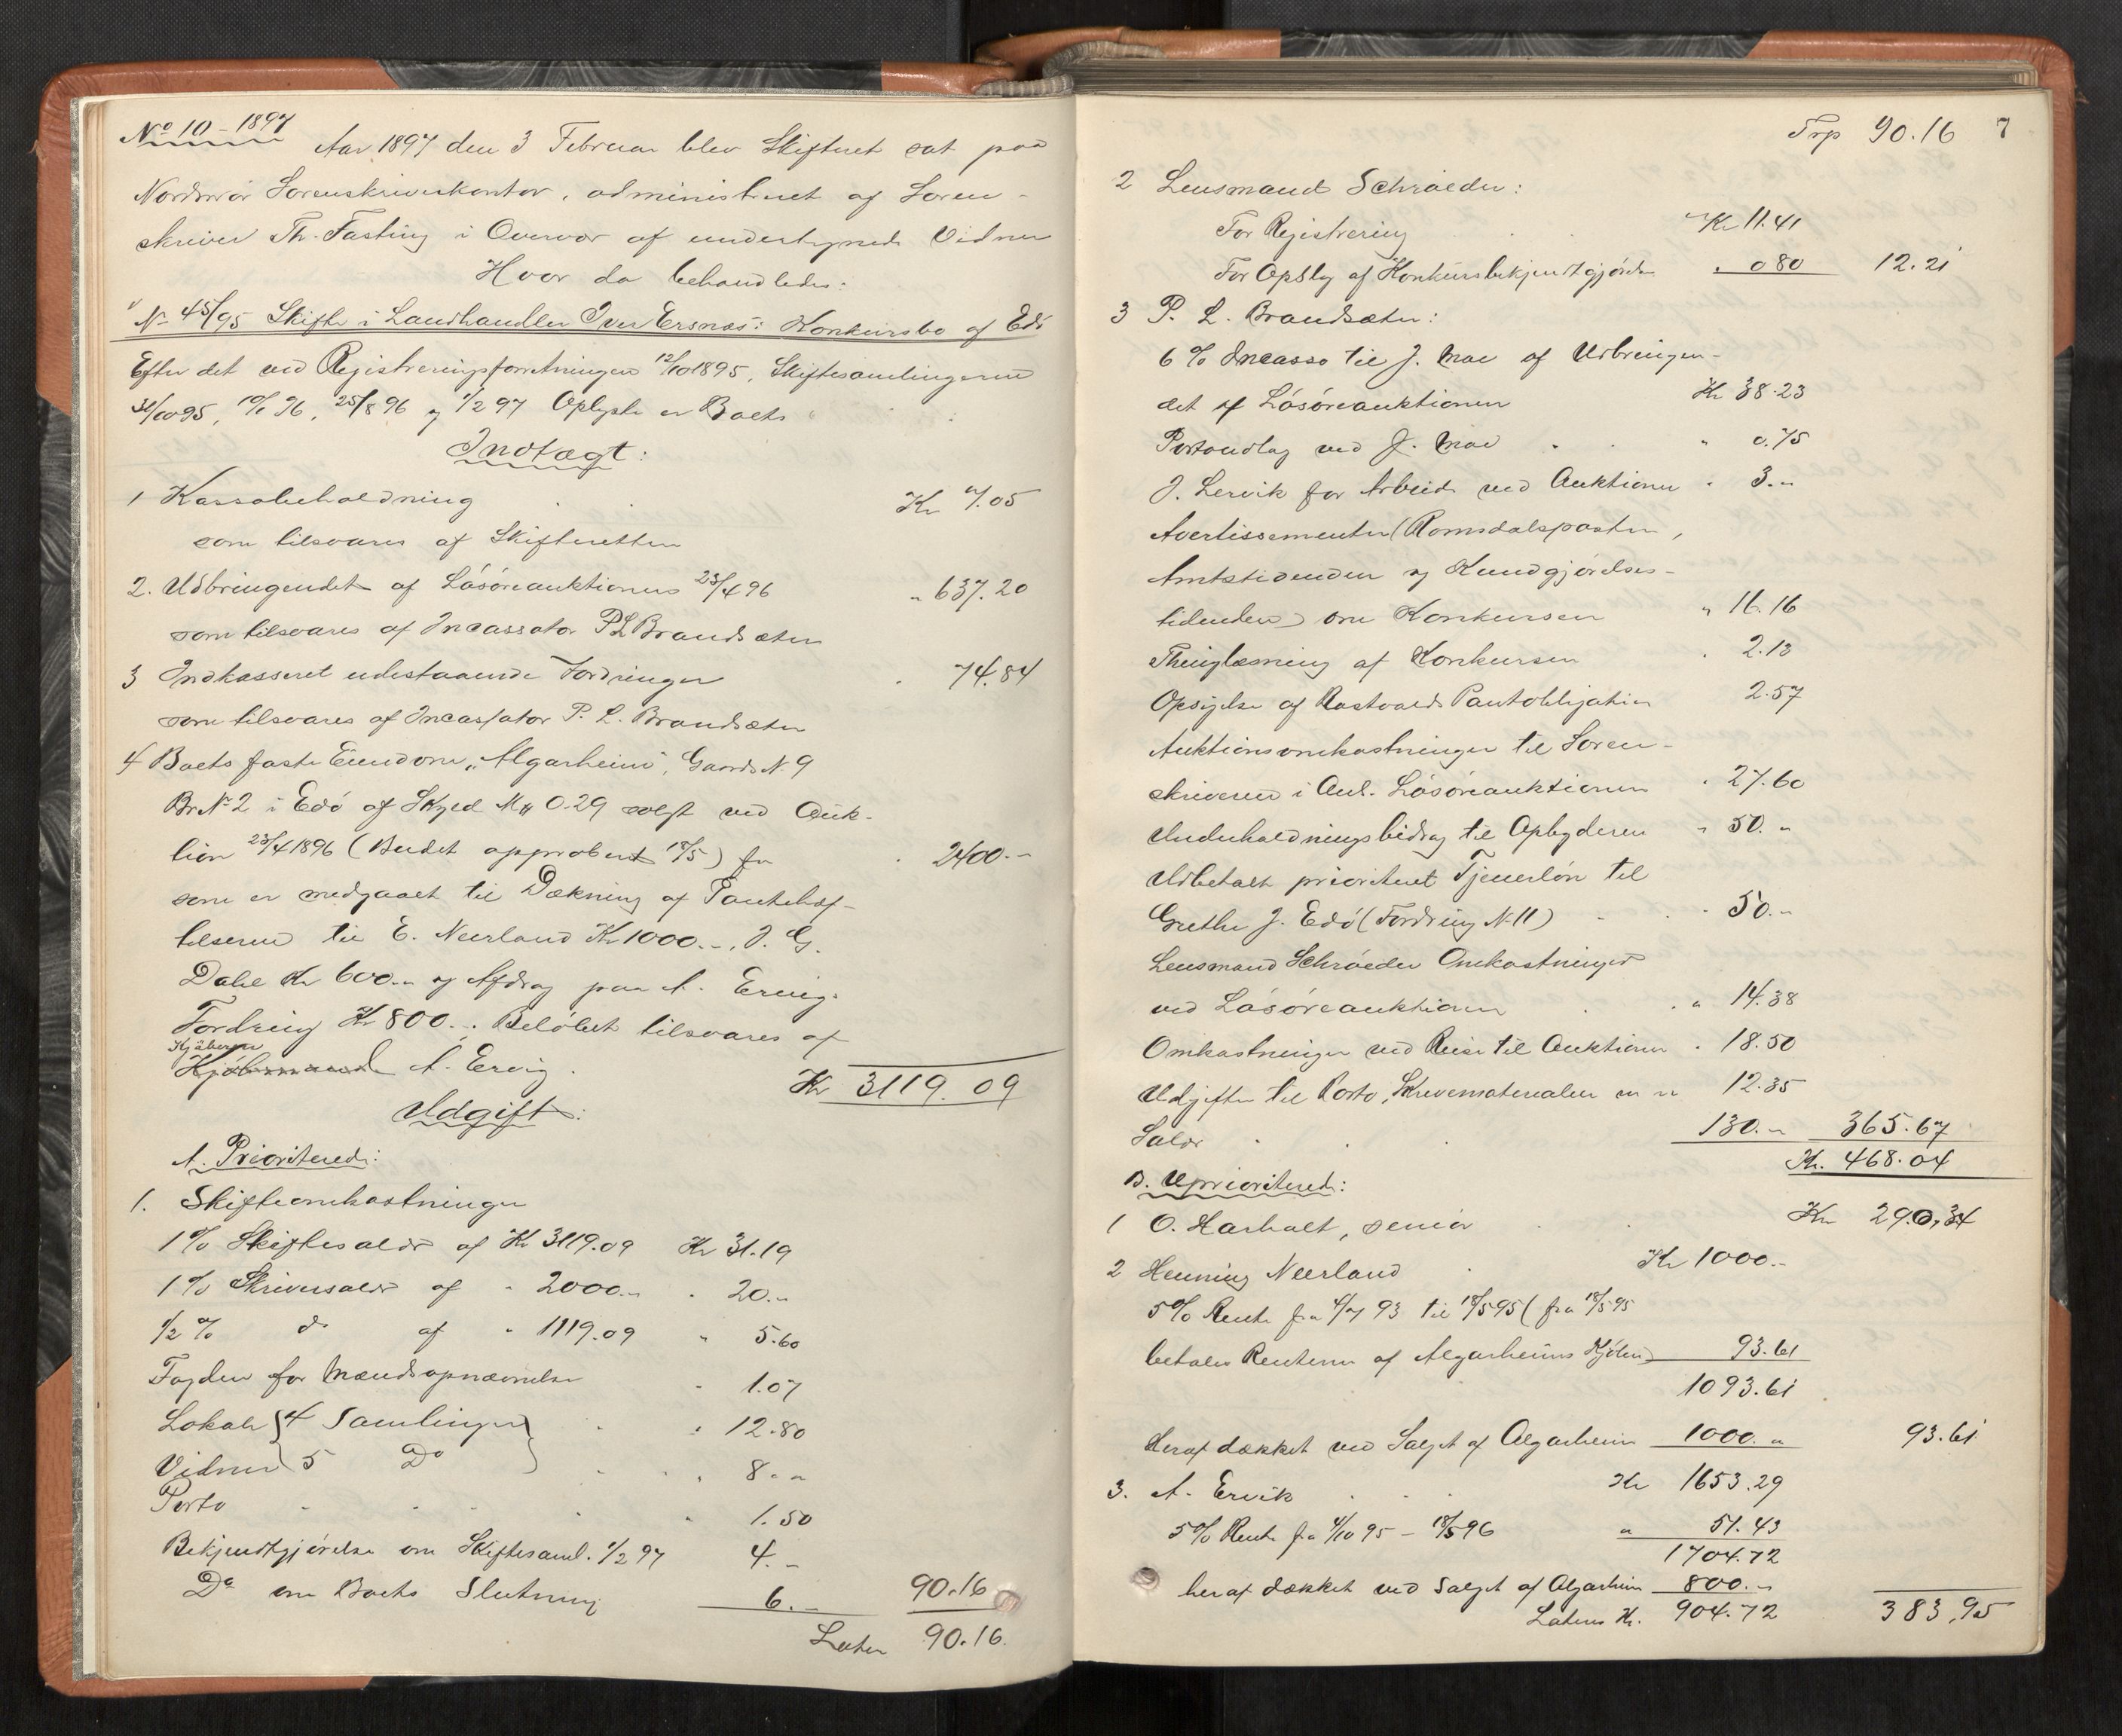 No 10 - 1897
Aar 1897 den 3 Februar blev Skifteret sat paa
Nordmør Sorenskriverkontor, administreret af Soren-
skriver Th. Fasting i Overvær af undertegnede Vidner
Hvor da behandledes:
No 45/95 Skifte i Landhandler Iver Ersnæs: Konkursbo af Edø
Efter det ved Registreringsforretningen 12/10 1895, Skiftesamlingerne
96, 25/8 96 og 1/2 97 Oplyste er Boets
Indtægt:
1 Kassabeholdning Kr 7.05
som tilsvares af Skifteretten
2. Udbringendet af Løsøreauktionen 23/4 96 " 637.20
som tilsvares af Incassator P L Brandsæter
3 Indkasseret udestaaende Fordringer " 74.84
som tilsvares af Incassator P. L. Brandsæter
4 Boets faste Eiendom "Algarheim", Gaards N. 9
Br. No 2 i Edø af Skyld Mk 0.29 solgt ved Auk-
tion 23/4 1896 (Budet approberet 18/5) for " 2400.-
som er medgaaet til Dækning af Pantehæf-
telserne til E. Neerland Kr 1000.-, J. G.
Dahl Kr 600.- og Afdrag paa A. Ervigs
Fordring Kr 800.-. Beløbet tilsvares af
Kjøberen
Kjøbmand A. Ervig. Kr 3119.09
Udgift:
A. Prioriterede:
1. Skifteomkostninger
1 % Skiftesalær af Kr 3119.09 Kr 31.19
1 % Skriversalær af " 2000.- " 20.-
1/2 % do af " 1119.09 " 5.60
Fogden for Mændsopnævnelse " 1.07
Lokale 4 Samlinger " 12.80
Vidner 5 Do " 8.-
Porto " 1.50
Bekjendtgjørelse om Skiftesaml. 1/2 97 4.-
Do om Boets Slutning 6.- 90.16
Later 90.16
Trp 90.16 7
2 Lensmand Schrøeder:
For Registrering Kr 11.41
For Opslag af Konkursbekjendtgjørelse " 0.80 12.21
3 P. L. Brandsæter:
6 % Incasso til J. Moe af Udbringen-
det af Løsøreauktionen Kr 38.23
Portoudlæg ved J. Moe " 0.75
J. Lervik for Arbeide ved Auktionen " 3.-
Avertissementer (Romsdalsposten,
Amtstidenden og Kundgjørelses-
tidenden) om Konkursen " 16.16
Thinglæsning af Konkursen " 2.13
Opsigelse af Rastvolds Pantobligation 2.57
Auktionsomkostninger til Soren-
skriveren i Anl. Løsøreauktionen " 27.60
Underholdningsbidrag til Opbyderen " 50.-
Udbetalt prioriteret Tjenerløn til
Grethe J. Edø (Fordring N. 11) " 50.-
Lensmand Schrøeder Omkostninger
ved Løsøreauktionen " 14.38
Omkostninger ved Reise til Auktionen " 18.50
Udgifter til Porto, Skrivematerialier m m 12.35
Salær 130.- 365.67
Kr. 468.04
B. Uprioriterede:
1 O. Harholt, senior Kr 290,34
2 Henning Neerland Kr 1000.-
5 % Rente fra 4/7 93 til 18/5 95 (fra 18/5 95
betales Renterne af Algarheims Kjøber) 93.61
1093.61
Heraf dækket ved Salget af Algarheim 1000.- 93.61
3. A. Ervik Kr 1653.29
5 % Rente fra 4/10 95 - 18/5 96 " 51.43
1704.72
heraf dækket ved Salget af Algarheim 800.-
Lateris Kr. 904.72 383,95